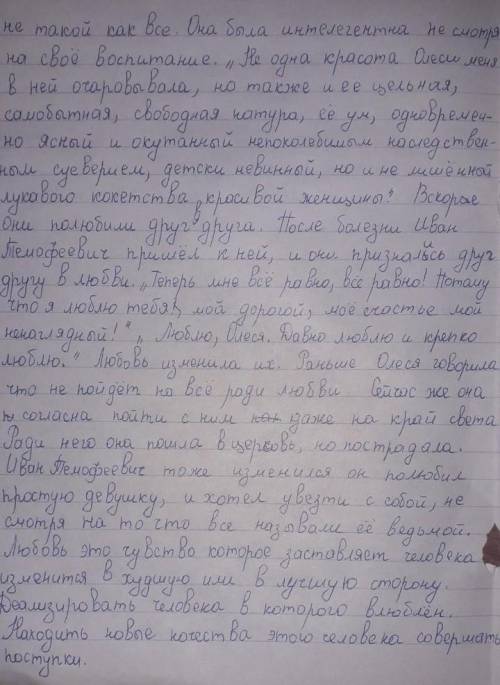 не такой как все. Она была интелегентна не смотря
на своё воспитание. „Не одна красота Олеси меня
в ней очаровывала, но также и ее цельная,
самобытная, свободная натура, её ум, одновремен-
но ясный и окутанный непоколебимым наследствен-
ным суеверием, детски невинный, но и не лишённой
лукавого кокетства красивой женщины." Вскорые
они полюбили друг друга. После болезни Иван
Темофеевич пришёл к ней, и они признались друг
другу в любви. „Теперь мне всё равно, всё равно! Потому
что я люблю тебя!, мой дорогой, моё счастье мой
ненаглядный!" „Люблю, Олеся. Давно люблю и крепко
люблю." Любовь изменила их. Раньше Олеся говорила
что не пойдёт на всё ради любви Сейчас же она
согласна пойти с ним даже на край света
Ради него она пошла в церковь, но пострадала.
Иван Темофеевич тоже изменился он полюбил
простую девушку, и хотел увезти с собой, не
смотря на то что все называли её ведьмой.
Любовь это чувство которое заставляет человека
изменится в худшую или в лучшую сторону.
Деализировать человека в которого влюблён.
Находить новые качества этого человека совершать
поступки.